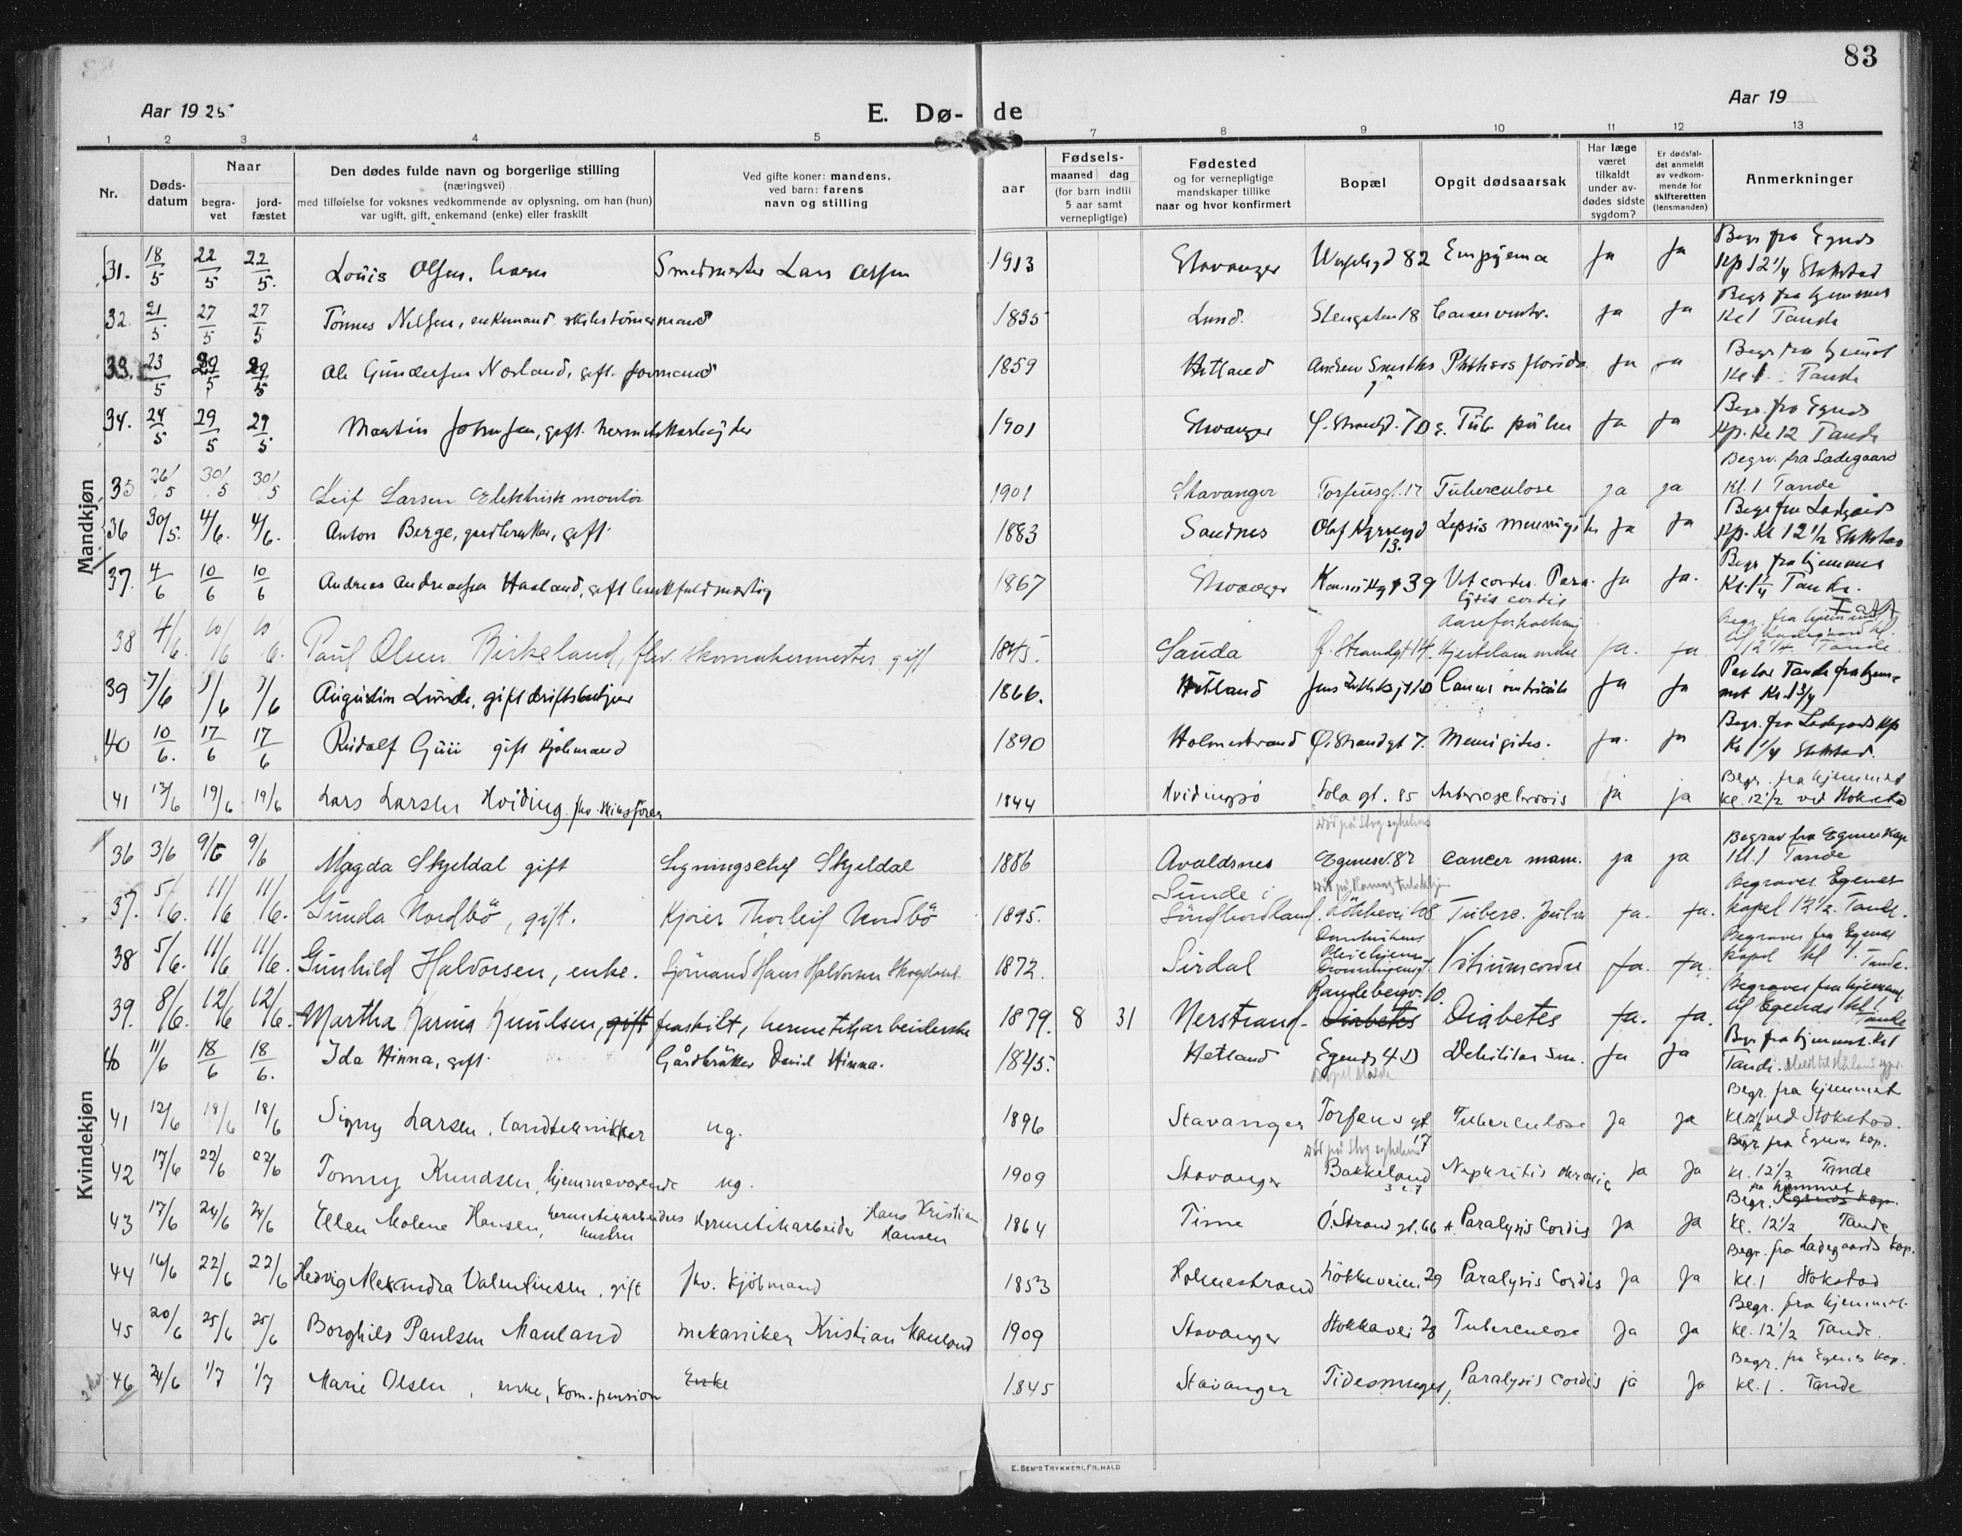 83
Aar 1925
E. Dø-de
Aar 19
1 2 3 4 5 6 7 8 9 10 11 12 13
Nr.
Døds-datum
Naar
begra-vet
jord-fæstet
Den dødes fulde navn og borgerlige stilling
(næringsvei)
med tilføielse for voksnes vedkommende av oplysning, om han (hun)
var ugift, gift, enkemand (enke) eller fraskilt
Ved gifte koner: mandens,
ved barn: farens
navn og stilling
aar
Fødsels-
maaned dag
(for barn indtil
5 aar samt
vernepligtige)
Fødested
og for vernepligtige
mandskaper tillike
naar og hvor konfirmert
Bopæl
Opgit dødsaarsak
Har læge
været
tilkaldt
under av-
dødes sidste
sygdom?
Er dødsfal-
det anmeldt
av vedkom-
mende for
skifteretten
(lensmanden)
Anmerkninger
Mandkjøn
31. 18/5 22/5 22/5. Louis Olsen. Smedmester Lars Olsen 1913 Stavanger 82 Empyema Ja Ja Begr fra Egenes Kp 12 1/4 Stokstad
32. 21/5 27/5 27/5 Tønnes Nilsen, enkemand 1835 Lund. Stengaten 18 Cancer ventr. Ja Ja Begr fra hjemmet Kl 1 Tande
33. 23/5 29/5 29/5 Ole Gundersen Norland, gift. formand 1859 Hetland Phthisis florida Ja Ja Begr fra hjemmet Kl 1. Tande
34. 24/5 29/5 29/5 Martin Johnsen, gift. hermetikarbeider 1901 Stavanger Ø. Strandgt. 70 Tub. pulm Ja Ja Begr. fra Egenes Kp. Kl 12 Tande
35 26/5 30/5 30/5 Leif Larsen Elektrisk montør 1901 Stavanger Torfeusgt. 17 Tuberculose ja ja Begrv. fra Ladegaard Kl. 1 Tande
36 30/5. 4/6. 4/6. Anton Berge, gift. 1883 Sandnes Olaf Kyrresgd 13. Ja Ja Kp. Kl 12 1/2 Stokstad
37. 4/6 10/6 10/6 Andreas Andreassen Haaland, gift 1867 Stavanger 39 Vit cordis. Paralysis cordis Ja Ja. Begr fra hjemmet Kl. 1 1/4 Tande.
38 4/6. 10/6 10/6. Paul Olsen Birkeland, fhv. skomakermester gift 1845. Sauda Ø. Strandgt 14. Aareforkalkning Hjertelammelse Ja. Ja. Begr. fra hjemmet til Ladegaard kl. 12 1/4. Tande.
39 7/6 Augustin Lunde, gift driftsbestyrer 1866. Hetland Cancer ventriculi Ja Ja Pastor Tande fra hjemmet Kl. 1 3/4
40 10/6. 17/6 17/6 Rudolf Guii gift Kjøbmand 1890 Holmestrand Ø. Strandgt 7. Meningites. Ja. Ja Begr. fra Ladegaards kp Kl 1 1/4 Stokstad.
41 19/6 19/6 Lars Larsen Hviding. 1844 Hvidingsø Sola gt. 85 Arteriosclerosis ja ja Begr. fra hjemmet Kl. 12 1/2 ved Stokstad
Kvindekjøn
36 3/6 9/6 9/6 Magda Skjeldal gift Ligningschef Skjeldal 1886 Avaldsnes Død på Stvg sykehus Egenesv. 82 Cancer mam. ja ja Begrav fra Egenes kap Kl. 1 Tande
37. 5/6. 11/6 11/6. Gunda Nordbö, gift. Kjører Thorleif Nordbö 1895. Sunde i Söndhordland. Tuberc. pulm Ja. Ja. Begraves Egenes kapel 12 1/2. Tande.
38 5/6. 11/6 11/6. Gunhild Halvorsen, enke. Sjömand Hans Halvorsen 1872. Sirdal Vitium cordis Ja. Ja. Begraves fra Egenes kapel kl 1. Tande.
39. 8/6. 12/6 12/6. Martha Karina Knudsen, gift fraskilt, hermetikarbeiderske 1879. 8 31 Nerstrand. Randebergv. 10. Diabetes Diabetes Ja. Ja. Begraves fra hjemmet til Egenes kl. 1 Tande
40 11/6 18/6 18/6. Ida Hinna, gift Gårdbruker David Hinna. 1845. Hetland Debilitas sen. Ja Ja Begr fra hjemmet. Kl 1 Tande.
41 12/6 18/6 18/6 Signy Larsen, Tandtekniker ug. 1896 Stavanger Torfeus gt 17 Tuberculose Ja Ja Begr. fra hjemmet kl. 12 1/2 ved Stokstad.
42 17/6 22/6 22/6 Tonny Knudsen, hjemmeværende ug. 1909 Stavanger Død på Stvg sykehus Bakkeland Nephritis chronic Ja Ja Begr. fra Egenes kap. kl. 12 1/2 Tande
43 17/6 24/6 24/6 Ellen Malene Hansen, hermetikarbeiders hustru Hermetikarbeider Hans Kristian Hansen 1864 Time Ö. Strand gt. 66 Paralysis Cordis Ja Ja Begr. fra hjemmet Egenes kap. kl. 12 1/2 Tande
44 16/6 22/6 22/6 Hedvig Alexandra Valentinsen, gift fhv. kjöbmand 1853 Holmestrand Lökkeveien 29 Paralysis Cordis Ja Ja Begr. fra Ladegaards kap. kl. 1 Stokstad
45 20/6 25/6 25/6 Borghild Paulsen Mauland mekaniker Kristian Mauland 1909 Stavanger Stokkavei 28 Tuberculose Ja Ja Begr. fra hjemmet. kl. 12 1/2 Tande.
46 24/6 1/7 1/7 Marie Olsen, enke, kom. pension Enke 1845 Stavanger Paralysis Cordis ja Ja Begr. fra Egenes kap. kl. 1. Tande
E. SEM'S TRYKKERI, FR. HALD